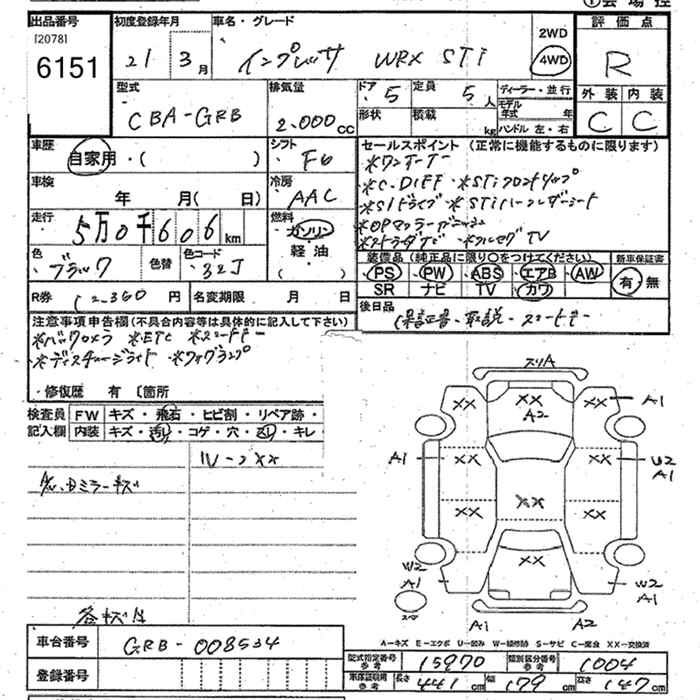 出品番号 初度登録年月 車名・グレード 評価点
[2078]
6151 21 3月 インプレッサ WRX STi 2WD 4WD R
型式 排気量 ドア 定員 ディーラー・並行 外装 内装
CBA-GRB 2.000cc 5 5人 モデル年式 年 C C
形状 積載 kg ハンドル 左・右
車歴 シフト セールスポイント (正常に機能するものに限ります)
自家用・( ) F6 *ワンオーナー
車検 冷房 *C.DIFF *STiフロントリップ
年 月( 日) AAC *SIドライブ *STiハーフレザーシート
走行 燃料 *OPマフラー
5万0千606km ガソリン TV
色 色替 色コード 軽油 装備品 (純正品に限り○をつけてください) 新車保証書
ブラック 32J ( ) PS PW ABS エアB AW 有・無
SR ナビ TV カワ
R券 12.360円 名変期限 月 日 後日品
保証書・取説・スペアキー
注意事項申告欄(不具合内容等は具体的に記入して下さい)
*バックカメラ *ETC
*ディスチャージライト *フォグランプ
・修復歴 有 〔箇所
検査員 FW キズ・飛石・ヒビ割・リペア跡・
記入欄 内装 キズ・汚れ・コゲ・穴・スレ・キレ
ルーフXX
左、右ミラーキズ
スリA
XX XX XX A1
A2
A1 XX XX W2
A1
XX XX XX
W2 XX W2
A1 A1
スペア
A1 A2
各キズ有
A―キズ E―エクボ U―凹み W―補修跡 S―サビ C―腐食 XX―交換済
車台番号 GRB-008534
型式指定番号 参考 15970 類別区分番号 参考 1004
登録番号
車庫証明用 参考 長さ 441cm 幅 179cm 高さ 147cm